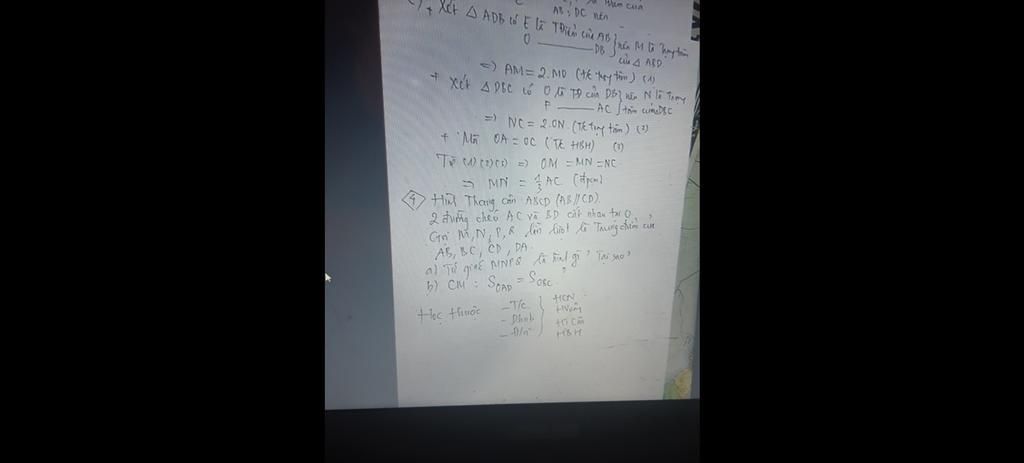 AB; DC nên
+ Xét △ ADB có E là TĐiểm của AB } nên M là Trọng tâm
O ——— DB của △ ABD
=> AM = 2.MO (t/c trọng tâm) (1)
+ Xét △DBC có O là TĐ của DB } nên N là Trọng
F ——— AC tâm của △DBC
=> NC = 2.ON (T/c trọng tâm) (2)
+ Mà OA = OC (T/c HBH) (3)
Từ (1)(2)(3) => OM = MN = NC
=> MN = 1/3 AC (đpcm)
4 Hình Thang cân ABCD (AB//CD).
2 đường chéo AC và BD cắt nhau tại O.
Gọi M, N, P, Q lần lượt là Trung điểm của
AB, BC, CD, DA.
a) Tứ giác MNPQ là hình gì? Tại sao?
b) CM: S OAD = S OBC.
Học thuộc – T/c. } HCN
– Dhnb HVuông
– Đ/n HT Cân
HBH